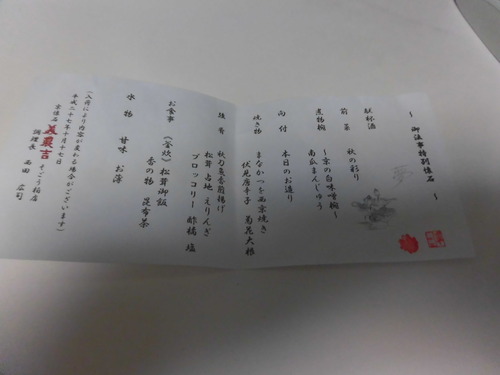 ～ 御法事特別懐石 ～
献杯酒
前菜 秋の彩り
煮物椀 ～京の白味噌椀～
南瓜まんじゅう
向付 本日のお造り
焼き物 まながつを西京焼き
伏見唐辛子 菊花大根
強肴 秋刀魚香煎揚げ
松茸占地 えりんぎ
ブロッコリー 酢橘 塩
お食事 《釜炊》松茸御飯
香の物 昆布茶
水物 甘味 お薄
(入荷により内容が変わる場合がございます)
平成二十七年十月十七日
京懐石 美濃吉 そごう柏店
調理長 西田 広司